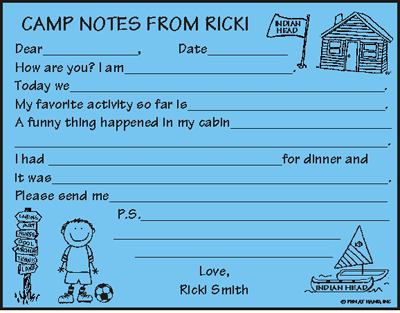 CAMP NOTES FROM RICKI
INDIAN HEAD
Dear__________, Date__________
How are you? I am__________.
Today we__________.
My favorite activity so far is__________.
A funny thing happened in my cabin__________
__________.
I had__________for dinner and
It was__________.
Please send me__________
P.S.__________
ART
POOL
TENNIS
LAKE
Love,
Ricki Smith
INDIAN HEAD